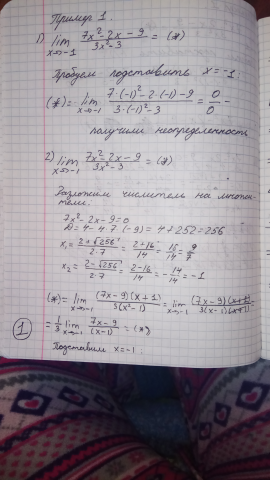 Пример 1.
1) lim x→-1 (7x²-2x-9)/(3x²-3) = (*)
Пробуем подставить x=-1:
(*) = lim x→-1 (7·(-1)²-2·(-1)-9)/(3·(-1)²-3) = 0/0 -
получили неопределенность
2) lim x→-1 (7x²-2x-9)/(3x²-3) = (*)
Разложим числитель на множи-
тели:
7x²-2x-9=0
D=4-4·7·(-9)=4+252=256
x₁=(2+√256)/(2·7)=(2+16)/14=18/14=9/7
x₂=(2-√256)/(2·7)=(2-16)/14=-14/14=-1
(*)= lim x→-1 (7x-9)(x+1)/(3(x²-1)) = lim x→-1 (7x-9)(x+1)/(3(x-1)(x+1))
= 1/3 lim x→-1 (7x-9)/(x-1) = (*)
Подставим x=-1:
1